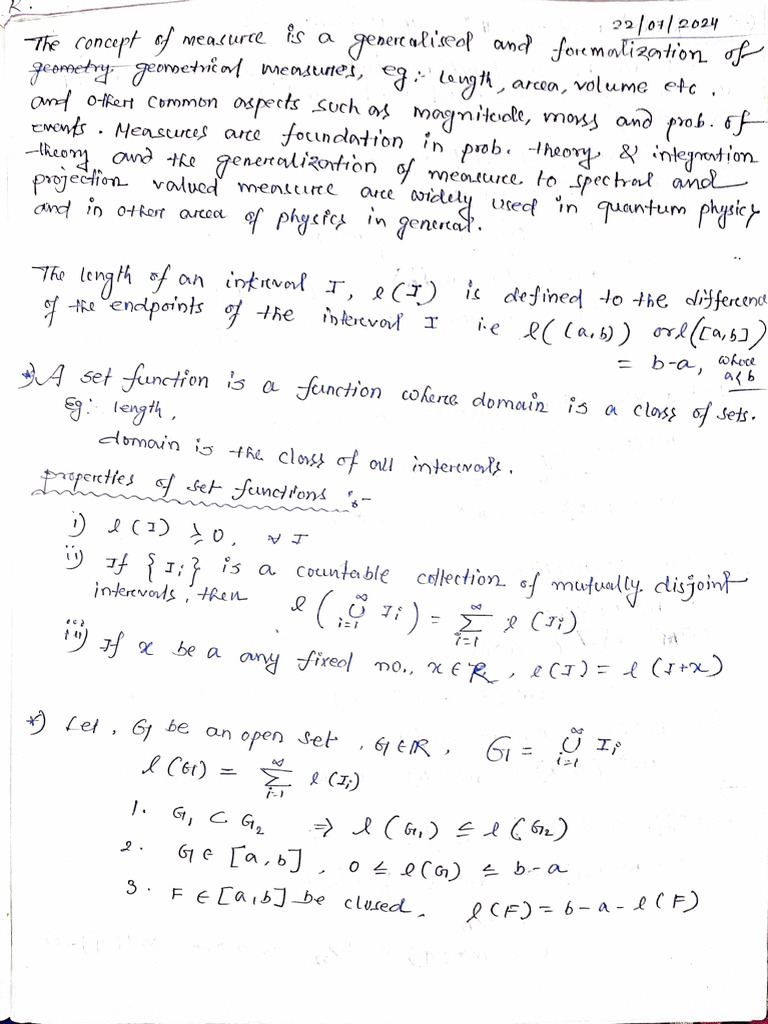 R.
22/07/2024
The concept of measure is a generalised and formalization of
geometry geometrical measures, eg:- Length, area, volume etc.
and other common aspects such as magnitude, mass and prob. of
events. Measures are foundation in prob. theory & integration
theory and the generalization of measure to spectral and
projection valued measure are widely used in quantum physics
and in other area of physics in general.
The length of an interval I, l(I) is defined to the difference
of the endpoints of the interval I i.e l((a,b)) or l([a,b])
= b-a, where a<b
*) A set function is a function where domain is a class of sets.
Eg:- length,
domain is the class of all intervals.
properties of set functions :-
i) l(I) ≥ 0, ∀ I
ii) If {Ii} is a countable collection of mutually disjoint
intervals, then l(∞∪i=1 Ii) = ∞Σi=1 l(Ii)
iii) If x be a any fixed no., x ∈ R, l(I) = l(I+x)
*) Let, G be an open set, G ∈ R, G = ∞∪i=1 Ii
l(G) = ∞Σi=1 l(Ii)
1. G1 ⊂ G2 ⇒ l(G1) ≤ l(G2)
2. G ∈ [a,b], 0 ≤ l(G) ≤ b-a
3. F ∈ [a,b] be closed, l(F) = b-a-l(F)